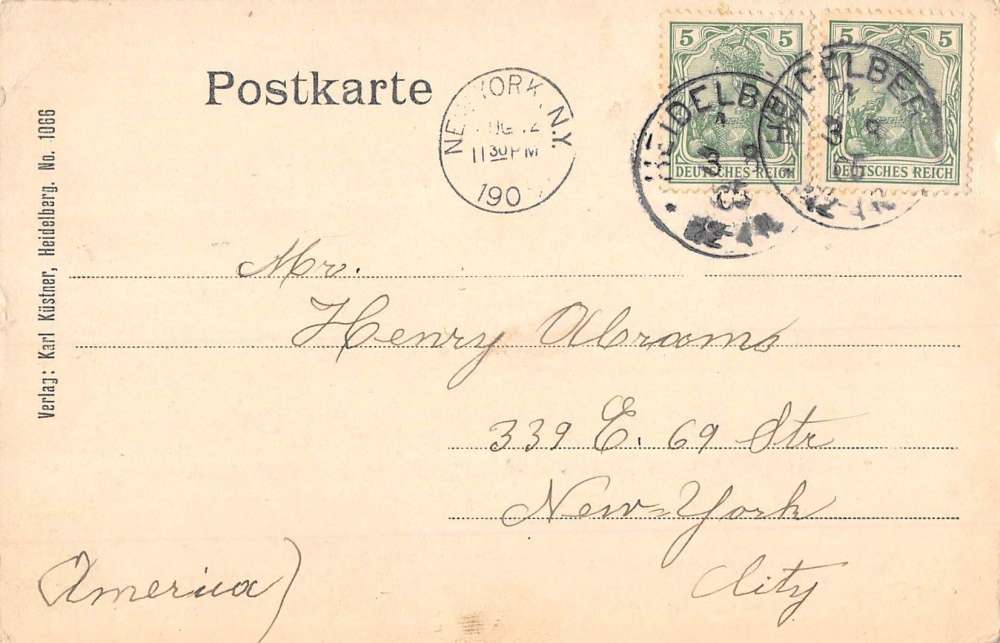 Postkarte
5 5
DEUTSCHES REICH
5 5
DEUTSCHES REICH
NEW YORK, N.Y.
12
11 30 PM
190
HEIDELBERG
3 8
05
HEIDELBERG
3 8
05
Verlag: Karl Küstner, Heidelberg. No. 1066
Mr.
Henry Abrams
339 E. 69 Str
New=York
City
(America)